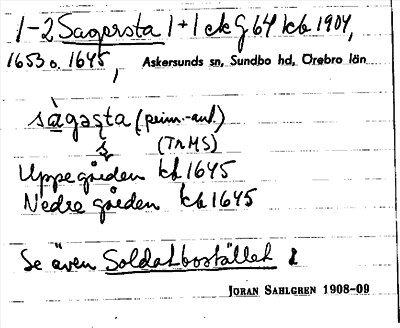 1-2 Sagersta 1+1 ck G 64 kb 1904,
1653 o. 1645, Askersunds sn, Sundbo hd, Örebro län
sàgasta (peim.-ant.)
(TnMS)
Uppegården kb 1645
Nedregården kb 1645
Se även Soldatbostället 2
JORAN SAHLGREN 1908-09